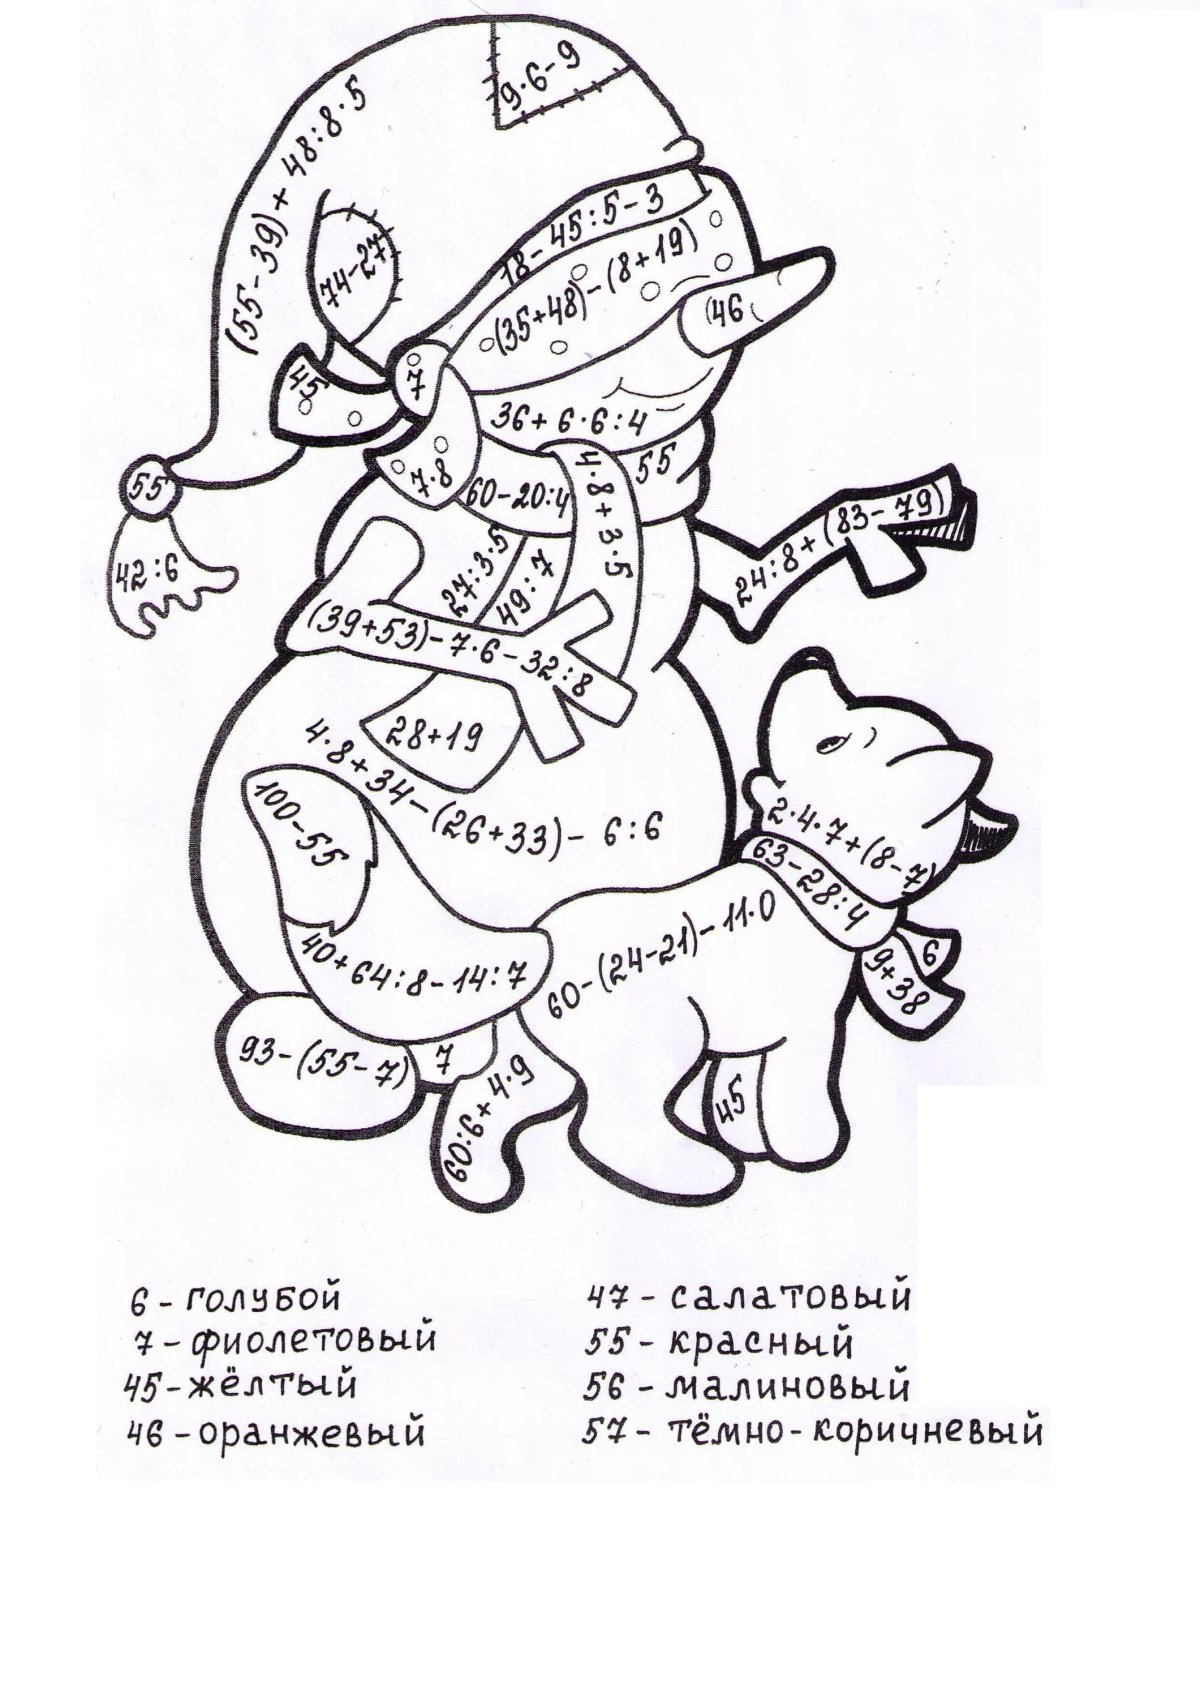 9·6-9
(55-39)+48:8·5
74-27
18-45:5-3
(35+48)-(8+19)
(46
7
45
36+6·6:4
55
7·8
55
60-20:4
4·8+3·5
24:8+(83-79)
42:6
27:3·5
49:7
(39+53)-7·6-32:8
28+19
4·8+34-(26+33)-6:6
100-55
2·4·7+(8-7)
63-28:4
6
9+38
40+64:8-14:7
60-(24-21)-11·0
93-(55-7)
7
60:6+4·9
45
6-голубой
7-фиолетовый
45-жёлтый
46-оранжевый
47-салатовый
55-красный
56-малиновый
57-тёмно-коричневый